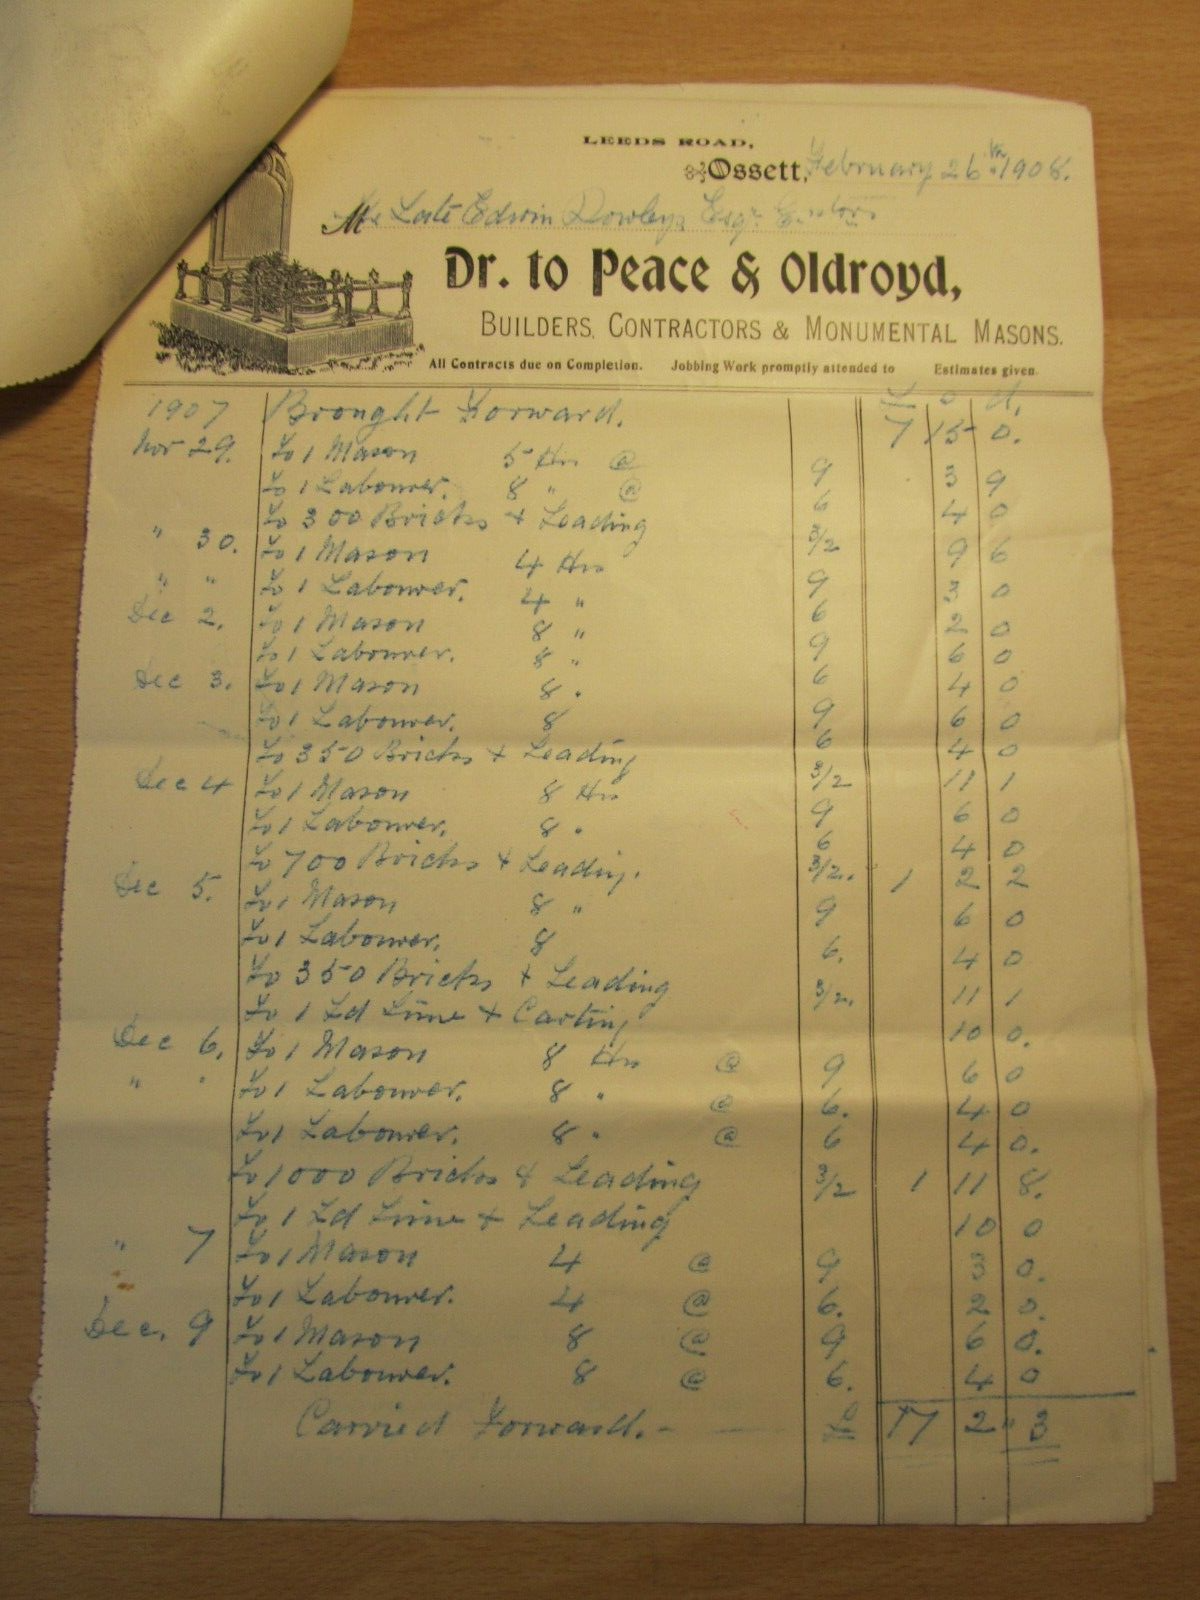 LEEDS ROAD,
Ossett, February 26th 1908.
M the Late Edwin Rowleys Esqr
Dr. to Peace & Oldroyd,
BUILDERS, CONTRACTORS & MONUMENTAL MASONS.
All Contracts due on Completion. Jobbing Work promptly attended to Estimates given.
£ s d.
1907 Brought Forward. 7 15 0.
Nov 29. To 1 Mason 5 Hrs @ 9 3 9
To 1 Labourer. 8 " @ 6 4 0
To 300 Bricks & Leading 3/2 9 6
" 30. To 1 Mason 4 Hrs 9 3 0
" " To 1 Labourer. 4 " 6 2 0
Dec 2. To 1 Mason 8 " 9 6 0
To 1 Labourer. 8 " 6 4 0
Dec 3. To 1 Mason 8 " 9 6 0
To 1 Labourer. 8 6 4 0
To 350 Bricks & Leading 3/2 11 1
Dec 4 To 1 Mason 8 Hrs 9 6 0
To 1 Labourer. 8 " 6 4 0
To 700 Bricks & Leading. 3/2. 1 2 2
Dec 5. To 1 Mason 8 " 9 6 0
To 1 Labourer. 8 6. 4 0
To 350 Bricks & Leading 3/2. 11 1
To 1 Ld Lime & Carting 10 0.
Dec 6. To 1 Mason 8 Hrs @ 9 6 0
" " To 1 Labourer. 8 " @ 6. 4 0
To 1 Labourer. 8 " @ 6 4 0.
To 1000 Bricks & Leading 3/2 1 11 8.
To 1 Ld Lime & Leading 10 0
" 7 To 1 Mason 4 @ 9 3 0.
To 1 Labourer. 4 @ 6. 2 0.
Dec. 9 To 1 Mason 8 @ 9 6 0.
To 1 Labourer. 8 @ 6. 4 0
Carried Forward. - £ 17 2 " 3